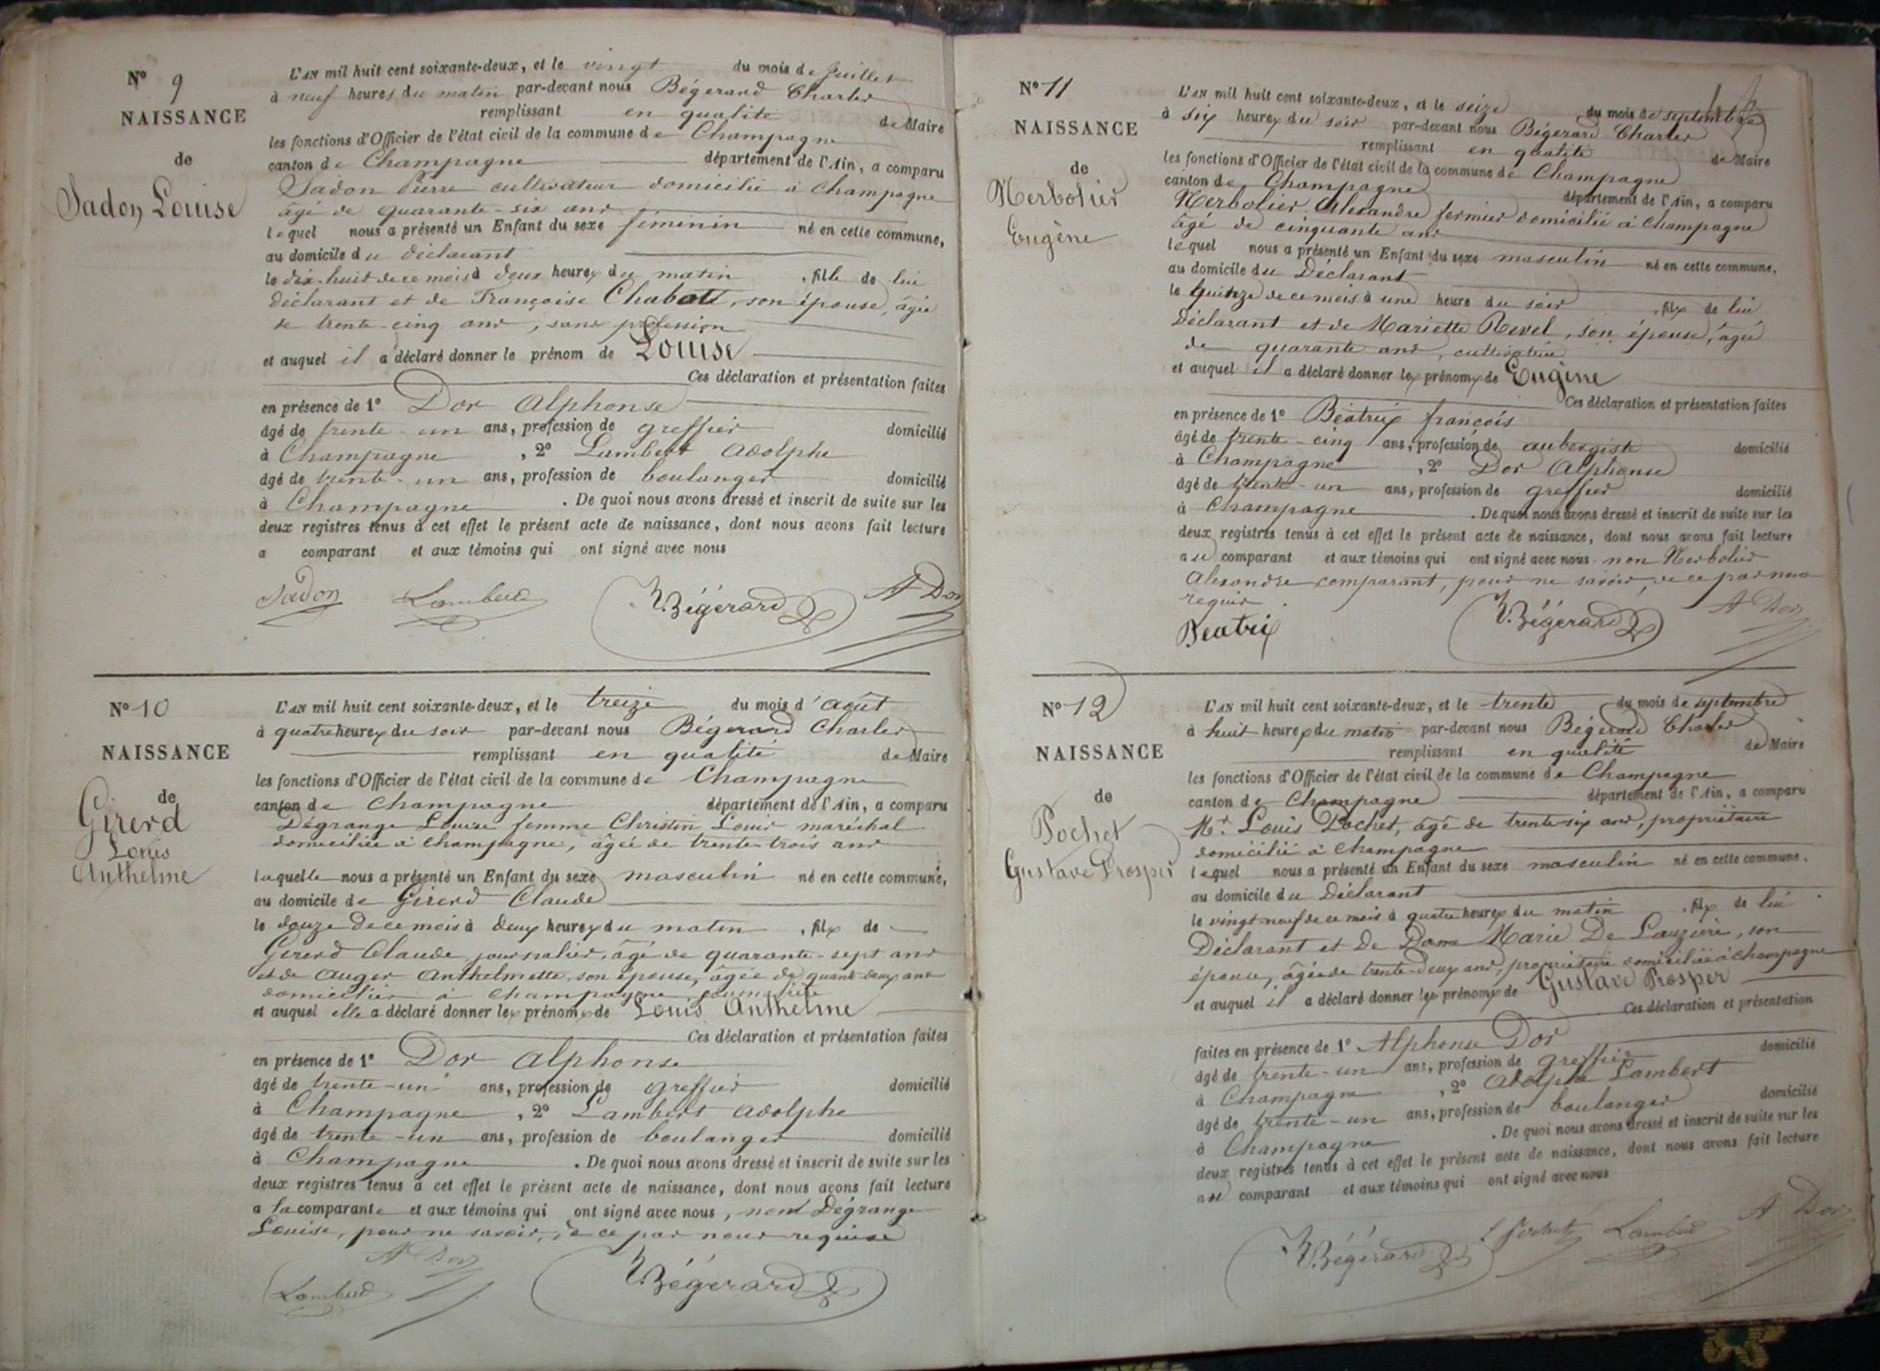 N° 9
NAISSANCE
de
Sadon Louise
L'AN mil huit cent soixante-deux, et le vingt du mois de Juillet
à neuf heures du matin par-devant nous Bégerard Charles
remplissant en qualité de Maire
les fonctions d'Officier de l'état civil de la commune de Champagne
canton de Champagne département de l'Ain, a comparu
Sadon Pierre cultivateur domicilié à Champagne
âgé de quarante-six ans
lequel nous a présenté un Enfant du sexe féminin né en cette commune,
au domicile du déclarant
le dix-huit de ce mois à deux heures du matin, fille de lui
déclarant et de Françoise Chabott, son épouse, âgée
de trente-cinq ans, sans profession
et auquel il a déclaré donner le prénom de Louise
Ces déclaration et présentation faites
en présence de 1° Dor Alphonse
âgé de trente-un ans, profession de greffier domicilié
à Champagne, 2° Lambert Adolphe
âgé de trente-un ans, profession de boulanger domicilié
à Champagne. De quoi nous avons dressé et inscrit de suite sur les
deux registres tenus à cet effet le présent acte de naissance, dont nous avons fait lecture
a comparant et aux témoins qui ont signé avec nous
Sadon Lambert Bégerard A Dor
N° 10
NAISSANCE
de
Girerd
Louis
Anthelme
L'AN mil huit cent soixante-deux, et le treize du mois d'Août
à quatre heures du soir par-devant nous Bégerard Charles
remplissant en qualité de Maire
les fonctions d'Officier de l'état civil de la commune de Champagne
canton de Champagne département de l'Ain, a comparu
Dégrange Louise femme Christin Louis maréchal
domiciliée à Champagne, âgée de trente-trois ans
laquelle nous a présenté un Enfant du sexe masculin né en cette commune,
au domicile de Girerd Claude
le douze de ce mois à deux heures du matin, fils de
Girerd Claude journalier, âgé de quarante-sept ans
et de Auger Anthelmette, son épouse, âgée de quarte deux ans
domiciliés à Champagne,
et auquel elle a déclaré donner les prénoms de Louis Anthelme
Ces déclaration et présentation faites
en présence de 1° Dor Alphonse
âgé de trente-un ans, profession de greffier domicilié
à Champagne, 2° Lambert Adolphe
âgé de trente-un ans, profession de boulanger domicilié
à Champagne. De quoi nous avons dressé et inscrit de suite sur les
deux registres tenus à cet effet le présent acte de naissance, dont nous avons fait lecture
a la comparante et aux témoins qui ont signé avec nous, non Dégrange
Louise, pour ne savoir, de ce par nous requise
A Dor
Lambert Bégerard
N° 11
NAISSANCE
de
Herbolier
Eugène
L'AN mil huit cent soixante-deux, et le seize du mois de septembre
à six heures du soir par-devant nous Bégerard Charles
remplissant en qualité de Maire
les fonctions d'Officier de l'état civil de la commune de Champagne
canton de Champagne département de l'Ain, a comparu
Herbolier Alexandre fermier domicilié à Champagne
âgé de cinquante ans
lequel nous a présenté un Enfant du sexe masculin né en cette commune,
au domicile du Déclarant
le quinze de ce mois à une heure du soir, fils de lui
Déclarant et de Mariette Revel, son épouse, âgée
de quarante ans, cultivatrice
et auquel il a déclaré donner les prénoms de Eugène
Ces déclaration et présentation faites
en présence de 1° Béatrix françois
âgé de trente-cinq ans, profession de aubergiste domicilié
à Champagne, 2° Dor Alphonse
âgé de trente-un ans, profession de greffier domicilié
à Champagne. De quoi nous avons dressé et inscrit de suite sur les
deux registres tenus à cet effet le présent acte de naissance, dont nous avons fait lecture
au comparant et aux témoins qui ont signé avec nous non Herbolier
Alexandre comparant, pour ne savoir, de ce par nous
requis.
Beatrix Bégerard A Dor
N° 12
NAISSANCE
de
Pochet
Gustave Prosper
L'AN mil huit cent soixante-deux, et le trente du mois de septembre
à huit heures du matin par-devant nous Bégerard Charles
remplissant en qualité de Maire
les fonctions d'Officier de l'état civil de la commune de Champagne
canton de Champagne département de l'Ain, a comparu
Mr Louis Pochet, âgé de trente six ans, propriétaire
domicilié à Champagne
lequel nous a présenté un Enfant du sexe masculin né en cette commune,
au domicile du Déclarant
le vingt neuf de ce mois à quatre heures du matin, fils de lui
Déclarant et de Dame Marie De Lauzière, son
épouse, âgée de trente-deux ans, propriétaire domiciliée à Champagne
et auquel il a déclaré donner les prénoms de Gustave Prosper
Ces déclaration et présentation
faites en présence de 1° Alphonse Dor
âgé de trente-un ans, profession de greffier domicilié
à Champagne, 2° Adolphe Lambert
âgé de trente-un ans, profession de boulanger domicilié
à Champagne. De quoi nous avons dressé et inscrit de suite sur les
deux registres tenus à cet effet le présent acte de naissance, dont nous avons fait lecture
au comparant et aux témoins qui ont signé avec nous
Bégerard L Pochet Lambert A Dor